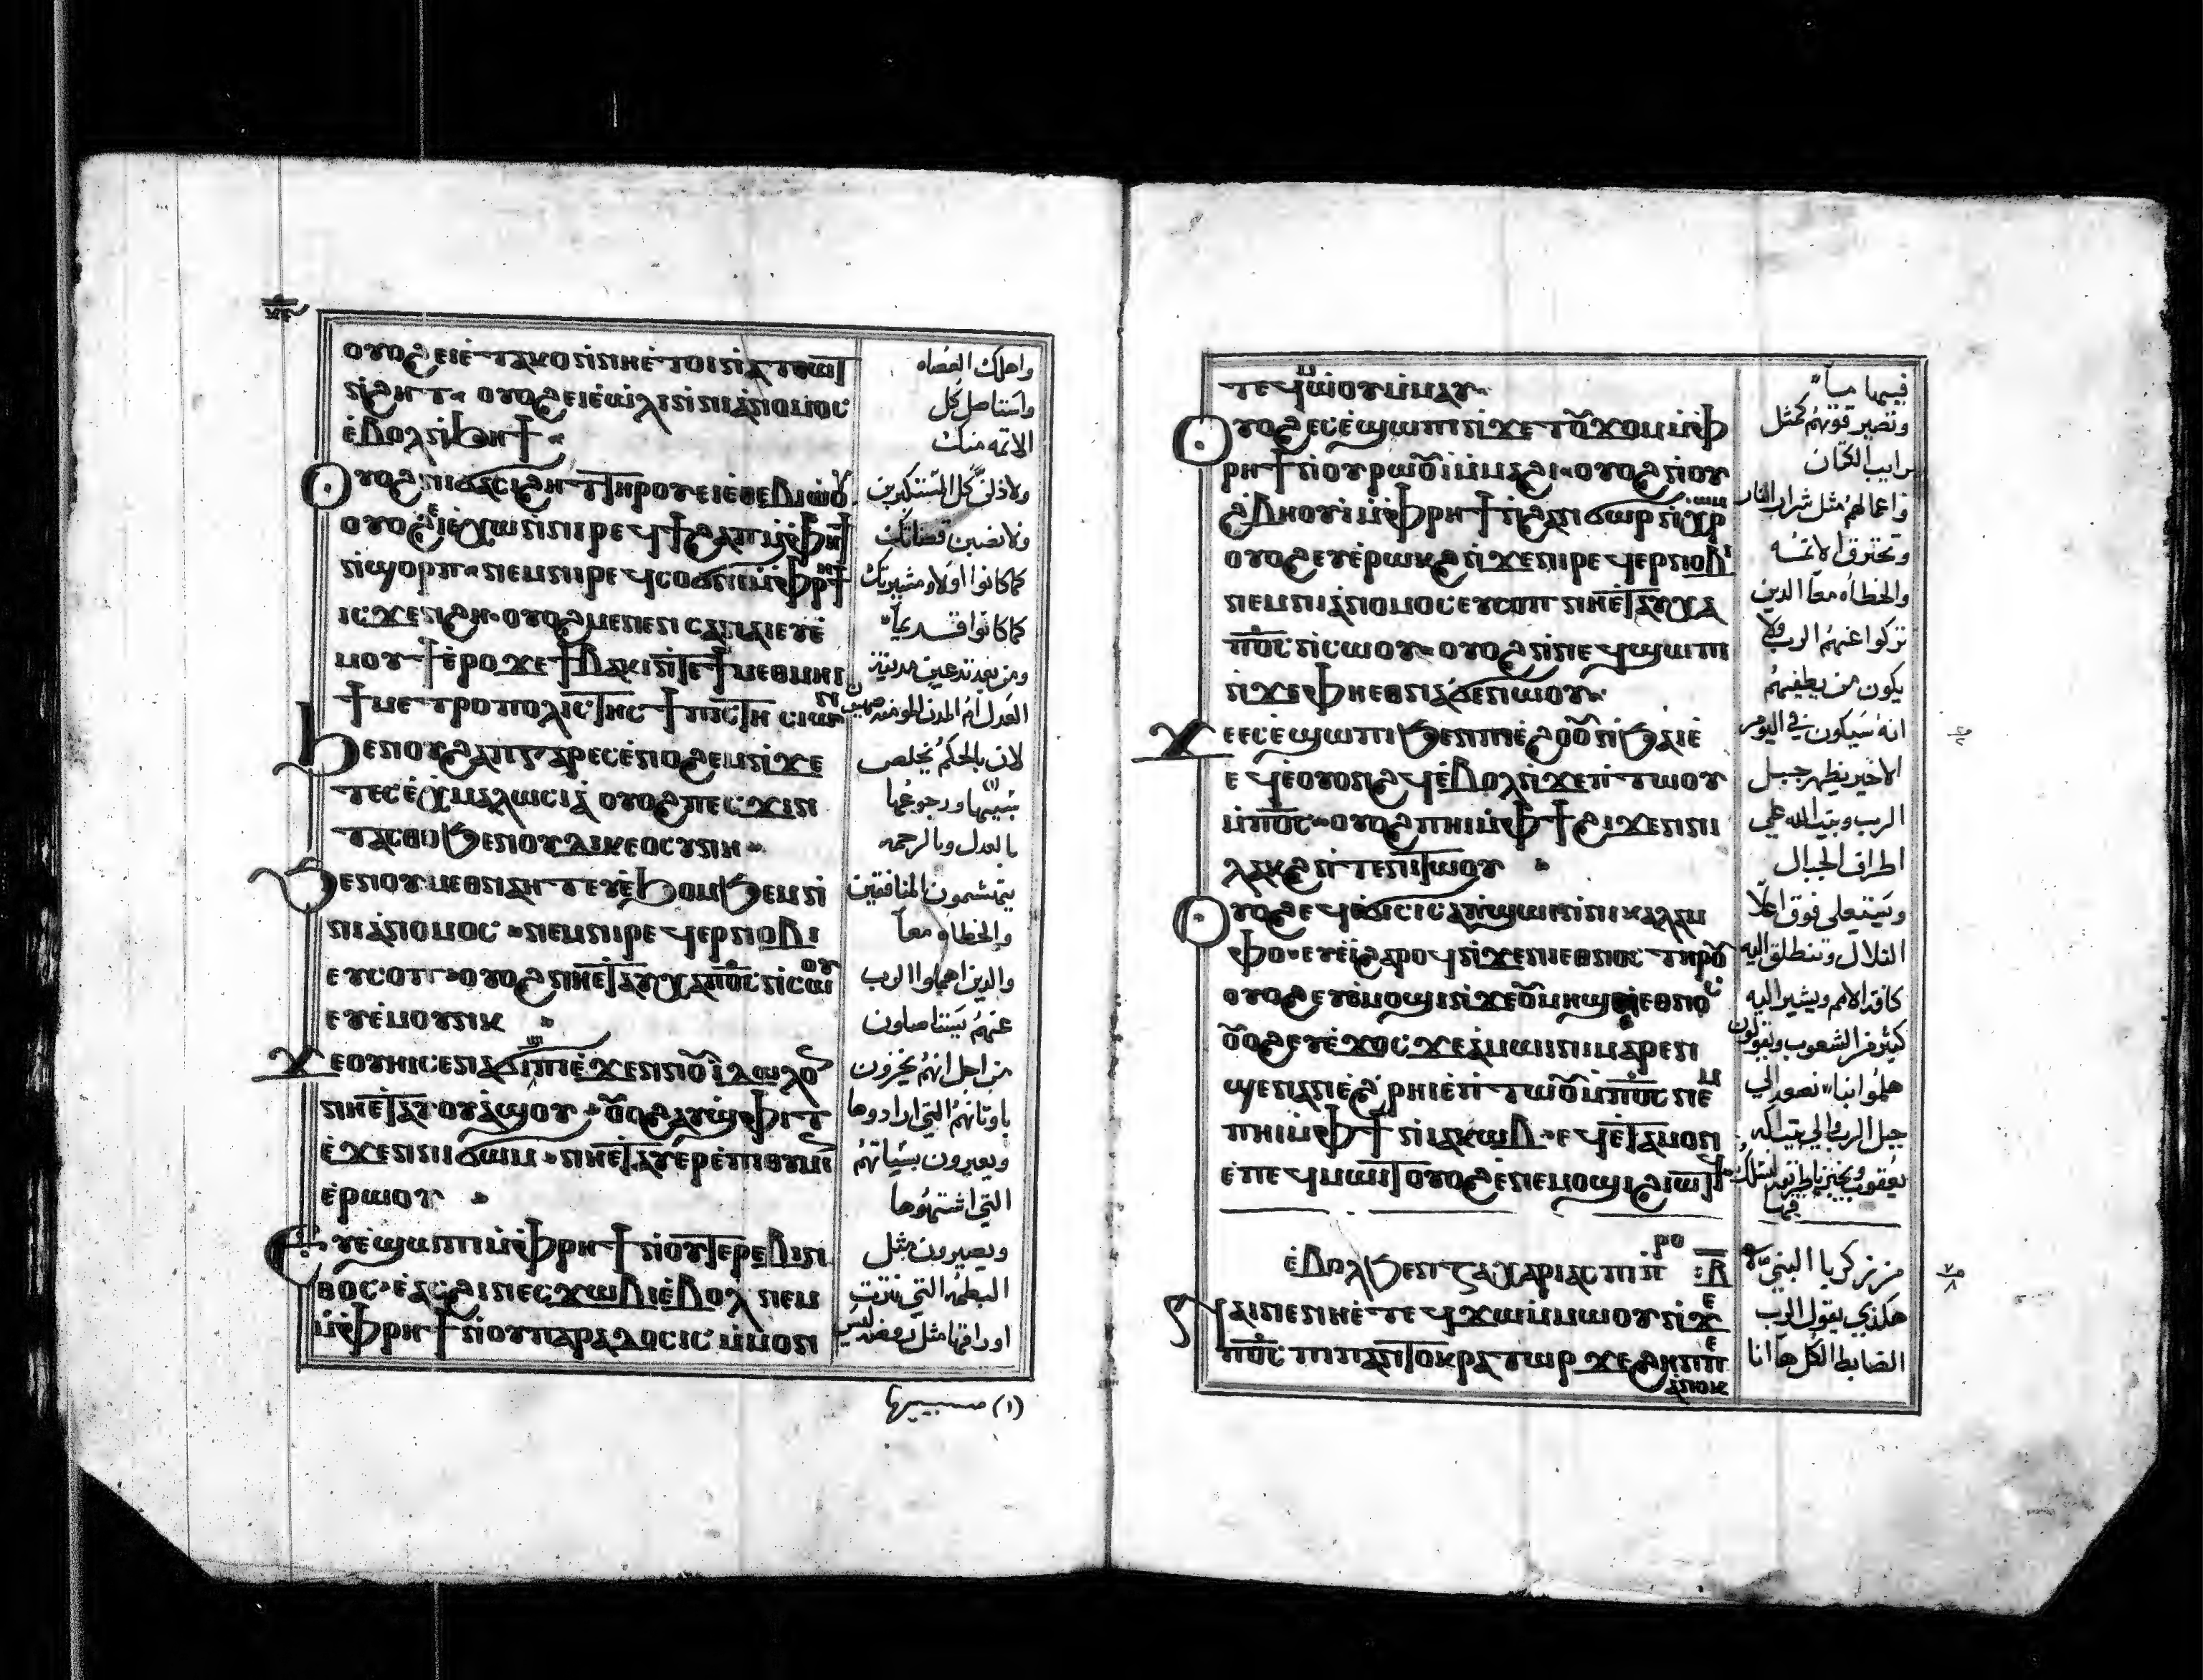 ⲟⲩⲟϩ ⲉⲓⲉ̀ⲧⲁⲕⲟ ⲛ̀ⲛⲏⲉ̀ⲧⲟⲓ ⲛ̀ⲁⲧⲑⲱⲧ
ⲛ̀ϩⲏⲧ ⲟⲩⲟϩ ⲉⲓⲉ̀ⲱ̀ⲗⲓ ⲛ̀ⲛⲓⲁ̀ⲛⲟⲙⲟⲥ
ⲉ̀ⲃⲟⲗ ⲛ̀ϧⲏϯ
ⲟⲩⲟϩ ⲛⲓϭⲁⲥⲓϩⲏⲧ ⲧⲏⲣⲟⲩ ⲉⲓⲉ̀ⲑⲉⲃⲓⲱⲟⲩ
ⲟⲩⲟϩ ⲉⲓⲉ̀ⲭⲱ ⲛ̀ⲛⲓⲣⲉϥϯϩⲁⲡ ⲙ̀ⲫⲣⲏϯ
ⲛ̀ϣⲟⲣⲡ ⲛⲉⲙ ⲛⲓⲣⲉϥⲥⲟϭⲛⲓ ⲙ̀ⲫⲣⲏϯ
ⲓⲥϫⲉⲛ ϩⲏ ⲟⲩⲟϩ ⲙⲉⲛⲉⲛⲥⲁ ⲛⲁⲓ ⲉⲩⲉ̀
ⲙⲟⲩϯ ⲉ̀ⲣⲟ ϫⲉ ϯⲃⲁⲕⲓ ⲛ̀ⲧⲉ ϯⲙⲉⲑⲙⲏⲓ
ϯⲙⲉⲧⲣⲟⲡⲟⲗⲓⲥ ⲧⲏⲥ ϯⲡⲓⲥⲧⲏ ⲥⲓⲱⲛ
ϧⲉⲛ ⲟⲩϩⲁⲡ ⲅⲁⲣ ⲉⲥⲉ̀ⲛⲟϩⲉⲙ ⲛ̀ϫⲉ
ⲧⲉⲥⲉ̀ⲭⲙⲁⲗⲱⲥⲓⲁ̀ ⲟⲩⲟϩ ⲡⲉⲥϫⲓⲛ
ⲧⲁⲥⲑⲟ ϧⲉⲛ ⲟⲩⲇⲓⲕⲉⲟⲥⲩⲛⲏ
ϧⲉⲛ ⲟⲩⲙⲉⲑⲛⲁⲏⲧ ⲉⲩⲉ̀ϧⲟⲙϧⲉⲙ ⲛ̀
ⲛⲓⲁ̀ⲛⲟⲙⲟⲥ ⲛⲉⲙ ⲛⲓⲣⲉϥⲉⲣⲛⲟⲃⲓ
ⲉⲩⲥⲟⲡ ⲟⲩⲟϩ ⲛⲏⲉ̀ⲧⲁⲩⲭⲁ ⲡ̅ⲟ̅ⲥ̅ ⲛ̀ⲥⲱⲟⲩ
ⲉⲩⲉ̀ⲙⲟⲩⲛⲕ
ϫⲉ ⲟⲩⲏⲓ ⲥⲉⲛⲁϭⲓϣⲓⲡⲓ ⲉ̀ϫⲉⲛ ⲛⲟⲩⲓ̀ⲇⲱⲗⲟⲛ
ⲛⲏⲉ̀ⲧⲁⲩⲟⲩⲁ̀ϣⲟⲩ ⲟⲩⲟϩ ⲁⲩϣⲫⲓⲧ
ⲉ̀ϫⲉⲛ ⲛⲓϭⲱⲙ ⲛⲏⲉ̀ⲧⲁⲩⲉⲣⲉ̀ⲡⲓⲑⲩⲙⲓⲛ
ⲉ̀ⲣⲱⲟⲩ
ⲉⲩⲉ̀ϣⲱⲡⲓ ⲙ̀ⲫⲣⲏϯ ⲛ̀ⲟⲩⲧⲉⲣⲉⲃⲓⲛ
ⲑⲟⲥ ⲉ̀ⲁⲥϩⲓ ⲛⲉⲥϫⲱⲃⲓ ⲉ̀ⲃⲟⲗ ⲛⲉⲙ
ⲙ̀ⲫⲣⲏϯ ⲛ̀ⲟⲩⲡⲁⲣⲁⲇⲟⲥⲓⲥ ⲙ̀ⲙⲟⲛ
واهلك العصاه
واستاصل كل
الاثمه منك
ولاذلن كل المستكبرين
ولانصبن قضاتك
كما كانوا اولا ومشيريك
كما كانوا قديماً
ومن بعد تدعين مدينة
العدل ام المدن المومنه صهيون
لان بالحكم يخلص
سبيها ورجوعها
بالعدل وبالرحمه
يتهشمون المنافقين
والخطاه معاً
والذين اهملوا الرب
عنهم يستاصلون
من اجل انهم يخزون
باوثانهم التي ارادوها
ويعيرون بسياتهم
التي اشتهوها
ويصيرون مثل
البطمه التي نثرت
اوراقها مثل بعض ليس
(١) مسبيها
ⲧⲉϥ ⲙⲱⲟⲩ ⲙ̀ⲙⲁⲩ
ⲟⲩⲟϩ ⲉⲥⲉ̀ϣⲱⲡⲓ ⲛ̀ϫⲉ ⲧⲟⲩϫⲟⲙ ⲙ̀ⲫ
ⲣⲏϯ ⲛ̀ⲟⲩⲣⲱⲟⲩⲓ ⲙ̀ⲙⲁϩⲓ ⲟⲩⲟϩ ⲛⲟⲩ
ϩ̀ⲃⲏⲟⲩⲓ ⲙ̀ⲫⲣⲏϯ ⲛ̀ϩⲁⲛϭⲱⲣ ⲛ̀ⲭⲣⲱⲙ
ⲟⲩⲟϩ ⲉⲩⲉ̀ⲣⲱⲕϩ ⲛ̀ϫⲉ ⲛⲓⲣⲉϥⲉⲣⲛⲟⲃⲓ
ⲛⲉⲙ ⲛⲓⲁ̀ⲛⲟⲙⲟⲥ ⲉⲩⲥⲟⲡ ⲛⲏⲉ̀ⲧⲁⲩⲭⲁ
ⲡ̅ⲟ̅ⲥ̅ ⲛ̀ⲥⲱⲟⲩ ⲟⲩⲟϩ ⲛ̀ⲛⲉϥϣⲱⲡⲓ
ⲛ̀ϫⲉ ⲫⲏⲉⲑⲛⲁϭⲉⲛⲱⲟⲩ
ϫⲉ ⲉⲥⲉ̀ϣⲱⲡⲓ ϧⲉⲛ ⲡⲓⲉ̀ϩⲟⲟⲩ ⲛ̀ϧⲁⲉ̀
ⲉϥⲉ̀ⲟⲩⲟⲛϩϥ ⲉ̀ⲃⲟⲗ ⲛ̀ϫⲉ ⲡ̀ⲧⲱⲟⲩ
ⲙ̀ⲡ̅ⲟ̅ⲥ̅ ⲟⲩⲟϩ ⲡⲏⲓ ⲙ̀ⲫϯ ϩⲓϫⲉⲛ ⲛⲓ
ⲗⲁⲕϩ ⲛ̀ⲧⲉ ⲛⲓⲧⲱⲟⲩ
ⲟⲩⲟϩ ⲉϥⲉ̀ϭⲓⲥⲓ ⲥⲁⲡ̀ϣⲱⲓ ⲛ̀ⲛⲓⲕⲁⲗⲁⲙ
ⲫⲟ ⲉⲩⲉ̀ⲓ̀ ϩⲁⲣⲟϥ ⲛ̀ϫⲉ ⲛⲓⲉⲑⲛⲟⲥ ⲧⲏⲣⲟⲩ
ⲟⲩⲟϩ ⲉⲩⲉ̀ⲙⲟϣⲓ ⲛ̀ϫⲉ ⲟⲩⲙⲏϣ ⲛ̀ⲉⲑⲛⲟⲥ
ⲟⲩⲟϩ ⲉⲩⲉ̀ϫⲟⲥ ϫⲉ ⲁ̀ⲙⲱⲓⲛⲓ ⲙⲁⲣⲉⲛ
ϣⲉⲛⲁⲛ ⲉ̀ϩ̀ⲣⲏⲓ ⲉ̀ⲡ̀ⲧⲱⲟⲩ ⲙ̀ⲡ̅ⲟ̅ⲥ̅ ⲛⲉⲙ
ⲡⲏⲓ ⲙ̀ⲫϯ ⲛ̀ⲓⲁⲕⲱⲃ ⲉϥⲉ̀ⲧⲁⲙⲟⲛ
ⲉ̀ⲡⲉϥⲙⲱⲓⲧ ⲟⲩⲟϩ ⲉ̀ⲛⲉⲙⲟϣⲓ ϩⲓⲱⲧϥ
ⲉ̀ⲃⲟⲗϧⲉⲛ ⲍⲁⲭⲁⲣⲓⲁⲥ ⲡⲓⲡ̅ⲣⲟ
ⲛⲁⲓ ⲛⲉ ⲛⲏⲉ̀ⲧⲉϥϫⲱ ⲙ̀ⲙⲱⲟⲩ ⲛ̀ϫⲉ
ⲡ̅ⲟ̅ⲥ̅ ⲡⲓⲡⲁⲛⲧⲟⲕⲣⲁⲧⲱⲣ ϫⲉ ϩⲏⲡⲡⲉ
ⲁ̀ⲛⲟⲕ
فيها مآ
وتصير قوتهم كمثل
واعمالهم مثل شرار النار
وتحترق الاثمه
والخطاه معا الذين
تركوا عنهم الرب ولا
يكون من يطفيهم
انه سيكون في اليوم
الاخير يظهر جبل
الرب وبيت الله علي
اطراف الجبال
ويستعلي فوق اعلا
التلال وتنطلق اليه
كافة الامم ويسير اليه
كثير من الشعوب ويقولون
هلموا بنا نصعد الي
جبل الرب والي بيت اله
من زكريا النبي
هكذي يقول الرب
الضابط الكل ها انا